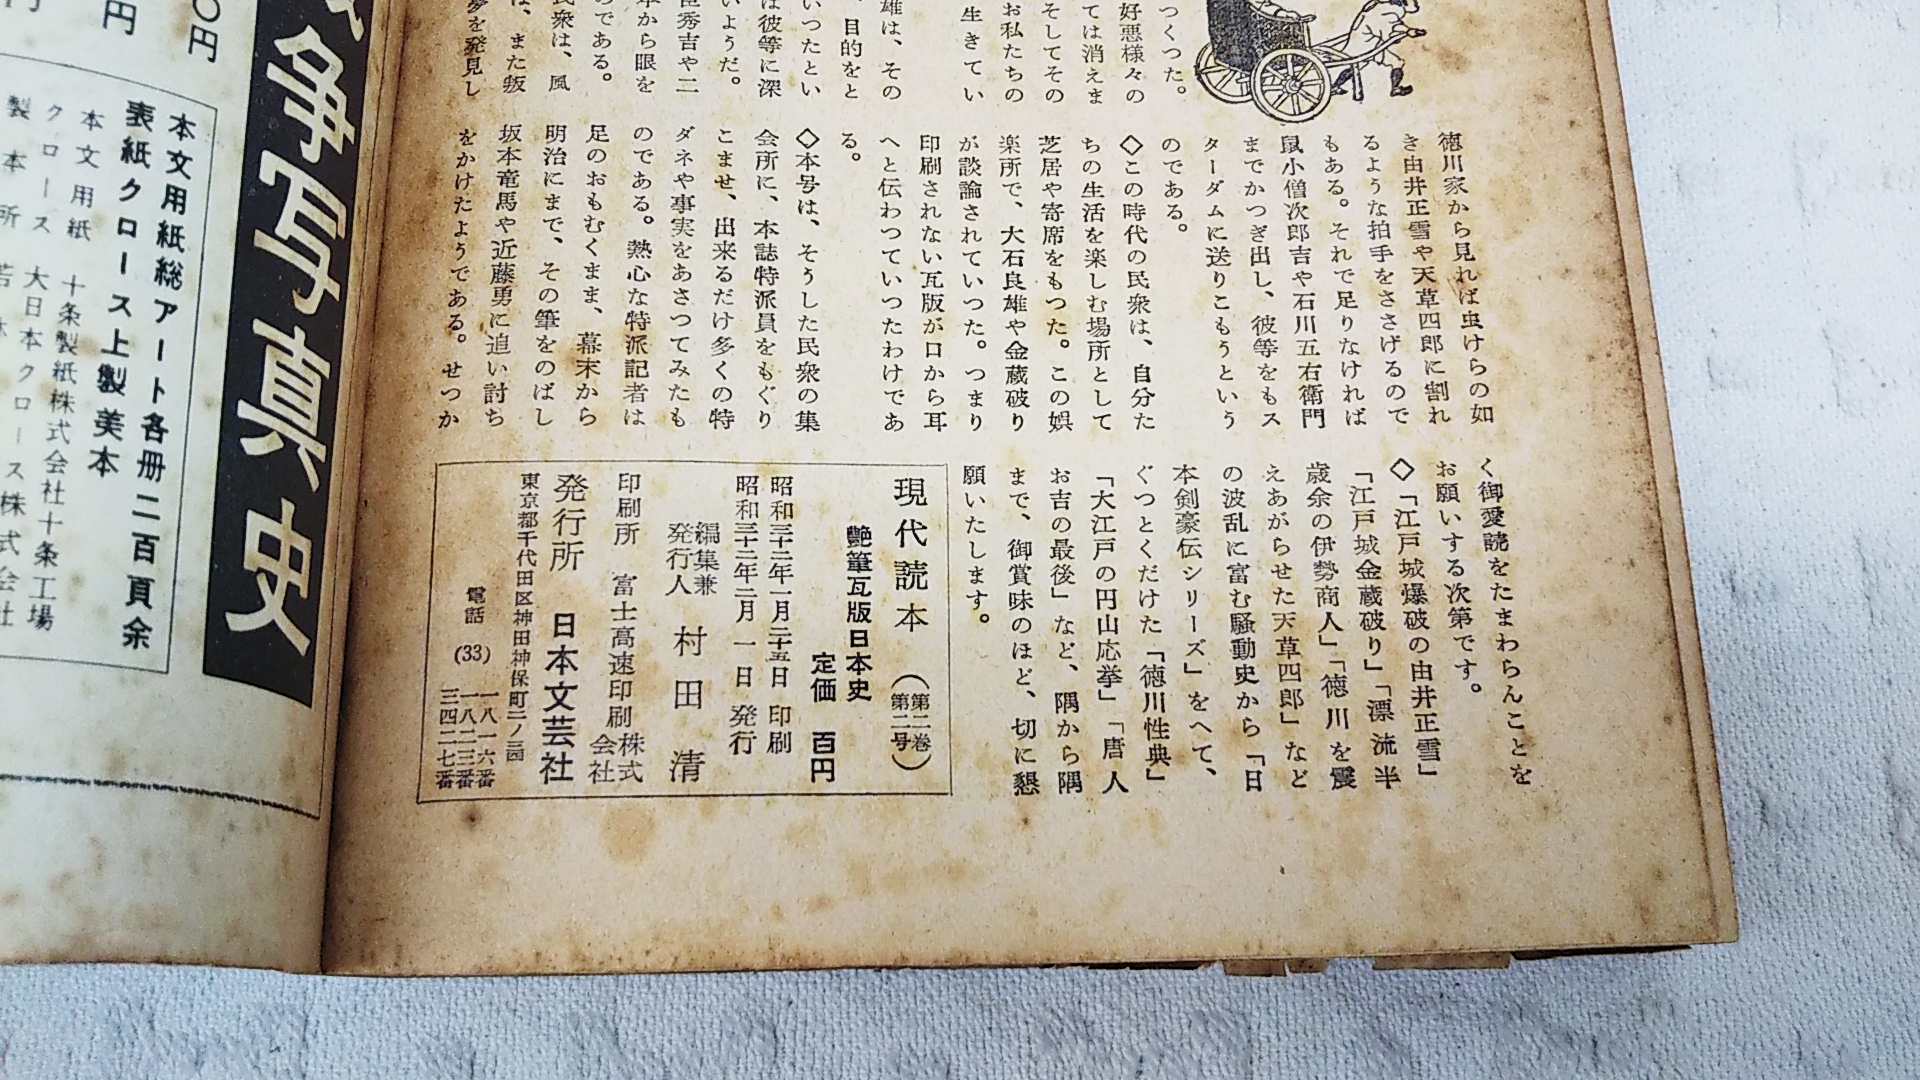 つくつた。
好悪様々の
ては消えま
そしてその
お私たちの
生きてい
雄は、その
、目的をと
いつたとい
は彼等に深
いようだ。
臣秀吉や二
本から眼を
のである。
民衆は、風
は、また叛
夢を発見し
徳川家から見れば虫けらの如
き由井正雪や天草四郎に割れ
るような拍手をささげるので
もある。それで足りなければ
鼠小僧次郎吉や石川五右衛門
までかつぎ出し、彼等をもス
ターダムに送りこもうという
のである。
◇この時代の民衆は、自分た
ちの生活を楽しむ場所として
芝居や寄席をもつた。この娯
楽所で、大石良雄や金蔵破り
が談論されていつた。つまり
印刷されない瓦版が口から耳
へと伝わつていつたわけであ
る。
◇本号は、そうした民衆の集
会所に、本誌特派員をもぐり
こませ、出来るだけ多くの特
ダネや事実をあさつてみたも
のである。熱心な特派記者は
足のおもむくまま、幕末から
明治にまで、その筆をのばし
坂本竜馬や近藤勇に追い討ち
をかけたようである。せつか
く御愛読をたまわらんことを
お願いする次第です。
◇「江戸城爆破の由井正雪」
「江戸城金蔵破り」「漂流半
歳余の伊勢商人」「徳川を震
えあがらせた天草四郎」など
の波乱に富む騒動史から「日
本剣豪伝シリーズ」をへて、
ぐつとくだけた「徳川性典」
「大江戸の円山応挙」「唐人
お吉の最後」など、隅から隅
まで、御賞味のほど、切に懇
願いたします。
現代読本(第二巻第二号)
艶筆瓦版日本史
定価 百円
昭和三十二年一月二十五日 印刷
昭和三十二年二月一日 発行
編集兼発行人 村田 清
印刷所 富士高速印刷株式会社
発行所 日本文芸社
東京都千代田区神田神保町二ノ三四
電話(33)一八一六番
一八二三番
三四二七番
争写真史
〇円
円
本文用紙総アート各冊二百頁余
表紙クロース上製美本
本文用紙 十条製紙株式会社十条工場
クロース 大日本クロース株式会社
製本所 若